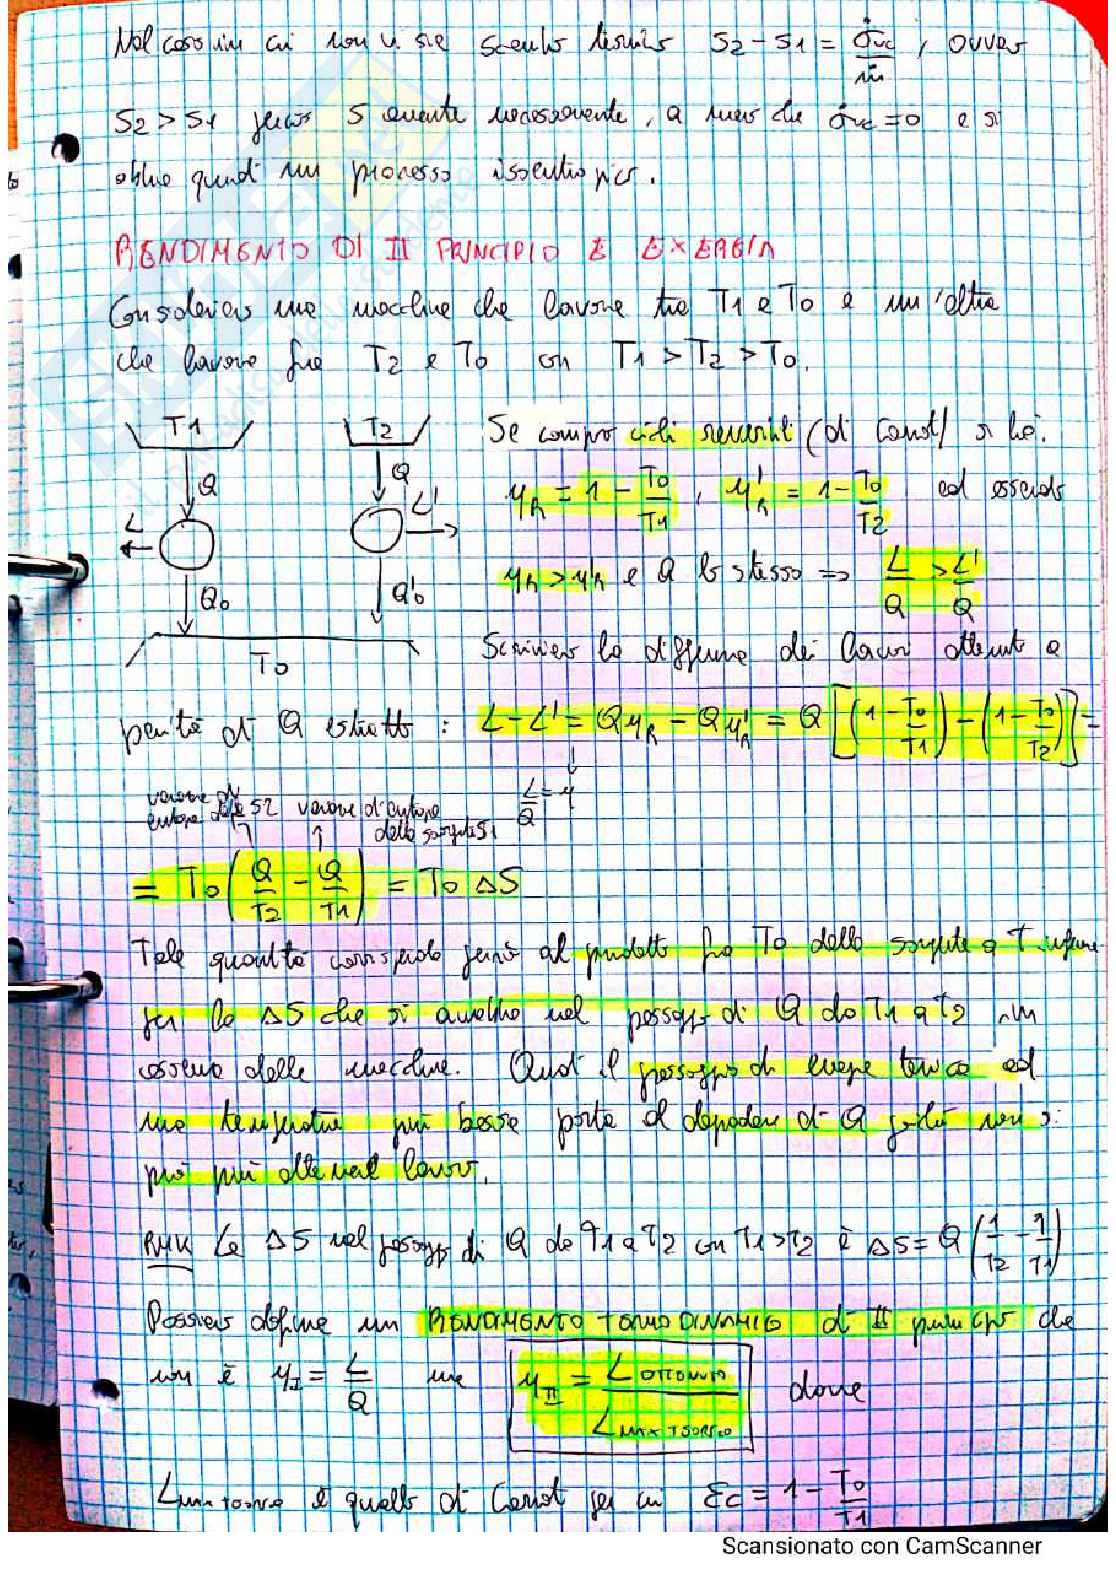 Nel caso in cui non vi sia scambio termico S2 - S1 = σ̇vc/ṁ , ovvero
S2 > S1 perciò S aumenta necessariamente, a meno che σ̇vc = 0 e si
ottiene quindi un processo isoentropico.
RENDIMENTO DI II PRINCIPIO E EXERGIA
Consideriamo una macchina che lavora tra T1 e T0 e un'altra
che lavora fra T2 e T0 con T1 > T2 > T0.
T1 T2 Se compio cicli reversibili (di Carnot) si ha:
Q Q
L L' ηR = 1 - T0/T1 , η'R = 1 - T0/T2 ed essendo
ηR > η'R e Q lo stesso => L/Q > L'/Q
Q0 Q'0
T0 Scriviamo la differenza dei lavori ottenuti a
parità di Q estratto : L - L' = QηR - Qη'R = Q[(1 - T0/T1) - (1 - T0/T2)] =
L/Q = η
variazione di entropia della S2 variazione d'entropia della sorgente S1
= T0 (Q/T2 - Q/T1) = T0 ΔS
Tale quantità corrisponde perciò al prodotto fra T0 della sorgente a T inferiore
per la ΔS che si avrebbe nel passaggio di Q da T1 a T2 in
assenza delle macchine. Quindi il passaggio di energia termica ad
una temperatura più bassa porta al degradare di Q poiché non si
può più ottenere lavoro.
RMK La ΔS nel passaggio di Q da T1 a T2 con T1 > T2 è ΔS = Q (1/T2 - 1/T1)
Possiamo definire un RENDIMENTO TERMODINAMICO di II principio che
non è ηI = L/Q ma ηII = L OTTENUTO / L MAX TEORICO dove
L max teorico è quello di Carnot per cui εc = 1 - T0/T1
Scansionato con CamScanner